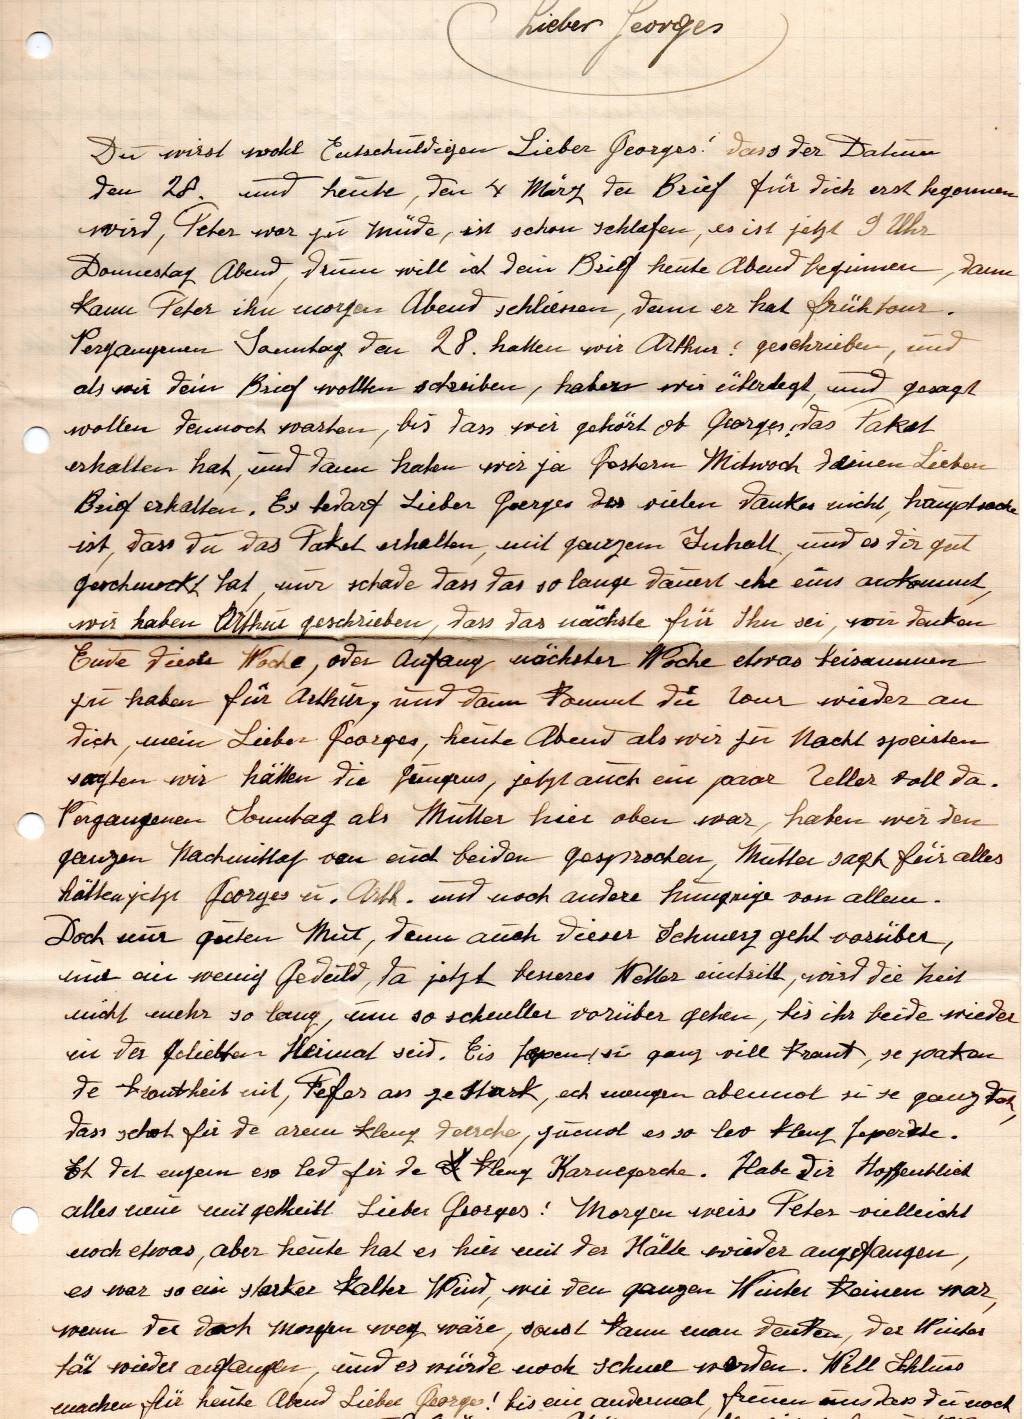 Lieber Georges
Du wirst wohl Entschuldigen Lieber Georges! dass der Datum
den 28. und heute, den 4 März der Brief für dich erst begonnen
wird, Peter war zu müde, ist schon schlafen, es ist jetzt 9 Uhr
Donnestag Abend, drum will ich dein Brief heute Abend beginnen, dann
kann Peter ihn morgen Abend schliessen, denn er hat frühtour.
Vergangenen Sonntag den 28. hatten wir Arthur! geschrieben, und
als wir dein Brief wollten schreiben, haben wir überlegt, und gesagt
wollen dennoch warten, bis dass wir gehört ob Georges, das Paket
erhalten hat, und dann haben wir ja Gestern Mitwoch deinen Lieben
Brief erhalten. Es bedarf Lieber Goerges des vielen dankes nicht, hauptsache
ist, dass du das Paket erhalten, mit ganzem Inhalt, und es dir gut
geschmeckt hat, nur schade dass das so lange dauert ehe eins ankommt,
wir haben Arthur geschrieben, dass das nächste für Ihn sei, wir denken
Ende diese Woche, oder Anfang nächster Woche etwas beisammen
zu haben für Arthur, und dann kommt die Tour wieder an
dich, mein Lieber Georges, heute Abend als wir zu Nacht speisten
sagten wir hätten die Jungens, jetzt auch ein paar Teller voll da.
Vergangenen Sonntag als Mutter hier oben war, haben wir den
ganzen Nachmittag von euch beiden gesprochen, Mutter sagt für alles
hätten jetzt Georges u. Arth. und noch andere hungrige von allem.
Doch nur guten Mut, denn auch dieser Schmerz geht vorüber,
nur ein wenig Geduld, da jetzt besseres Wetter eintritt, wird die Zeit
nicht mehr so lang, um so schneller vorüber gehen, bis ihr beide wieder
in der geliebten Heimat seid. Eis si ganz vill krank, se
de krankheit nit, Fefer as ze stark, ech mengen abennot si se ganz
dass schot fir de arem kleng so lev kleng
Et det engem eso led fir de kleng Habe Dir Hoffentlich
alles neue mitgetheilt Lieber Georges! Morgen weiss Peter vielleicht
noch etwas, aber heute hat es hier mit der Kälte wieder angefangen,
es war so ein starker kalter Wind, wie den ganzen Winter keinen war,
wenn der doch morgen weg wäre, sonst kann man denken, der Winter
tät wieder anfangen, und es würde noch schnee werden. Will Schluss
machen für heute Abend Lieber Georges! bis ein andermal, freuen uns dass du noch